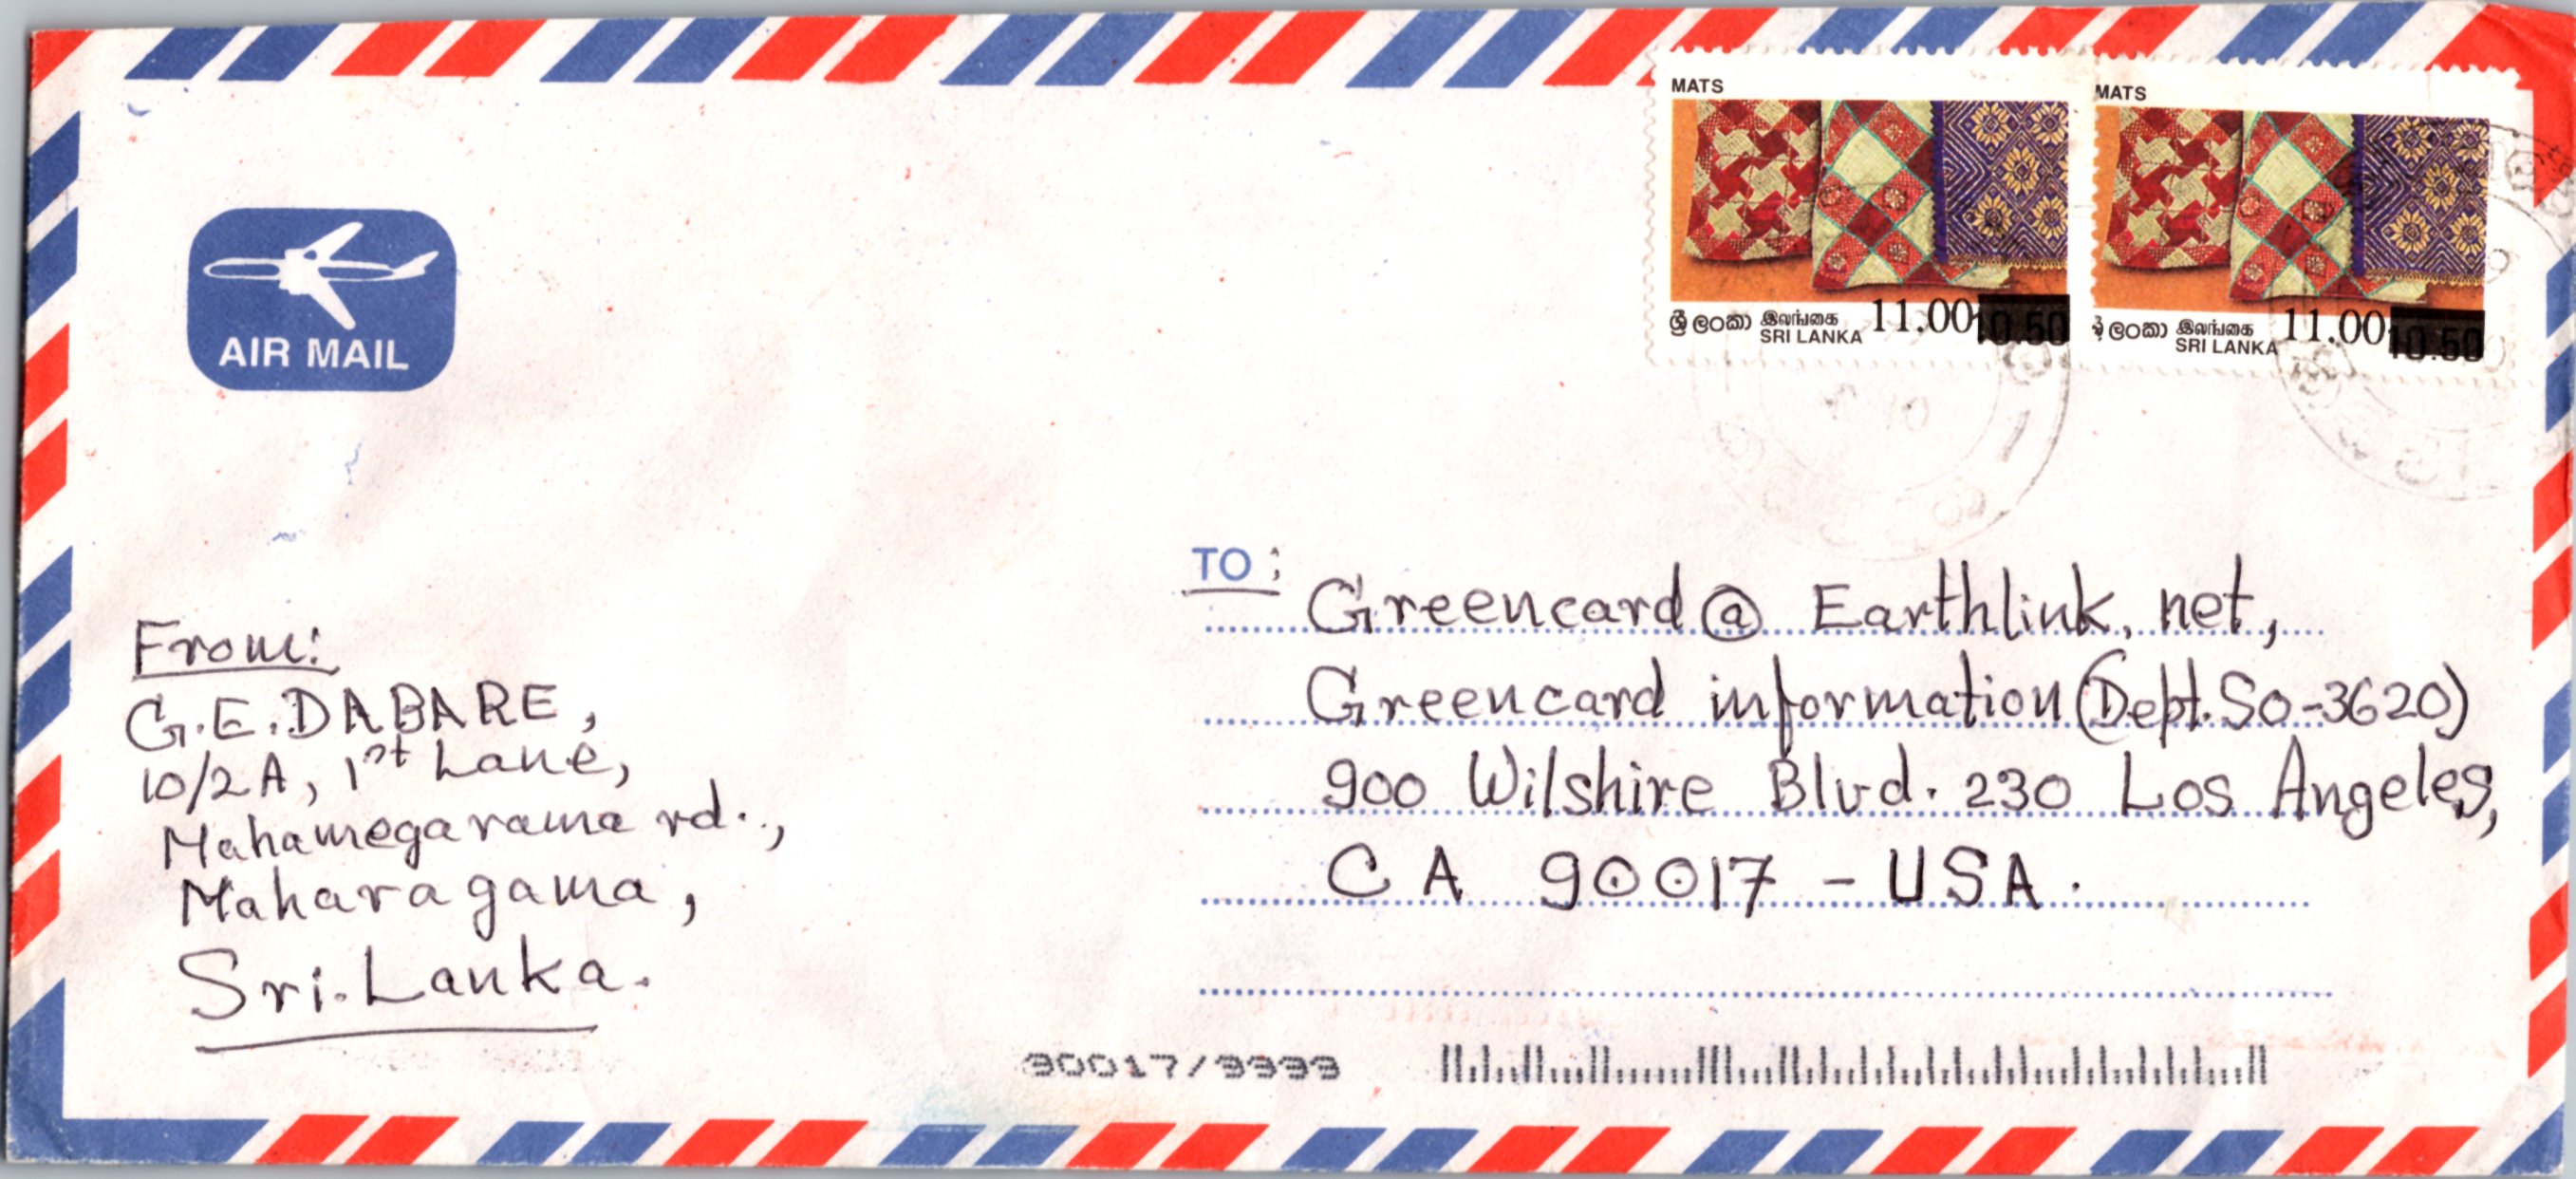 MATS
MATS
ශ්‍රී ලංකා இலங்கை 11.00 10.50
SRI LANKA
ශ්‍රී ලංකා இலங்கை 11.00 10.50
SRI LANKA
AIR MAIL
TO:
Greencard@ Earthlink.net,
Greencard information (Dept. SO-3620)
900 Wilshire Blvd. 230 Los Angeles,
CA 90017 - USA.
From:
G.E. DABARE,
10/2A, 1st Lane,
Mahamegarama rd.,
Maharagama,
Sri.Lanka.
90017/9999